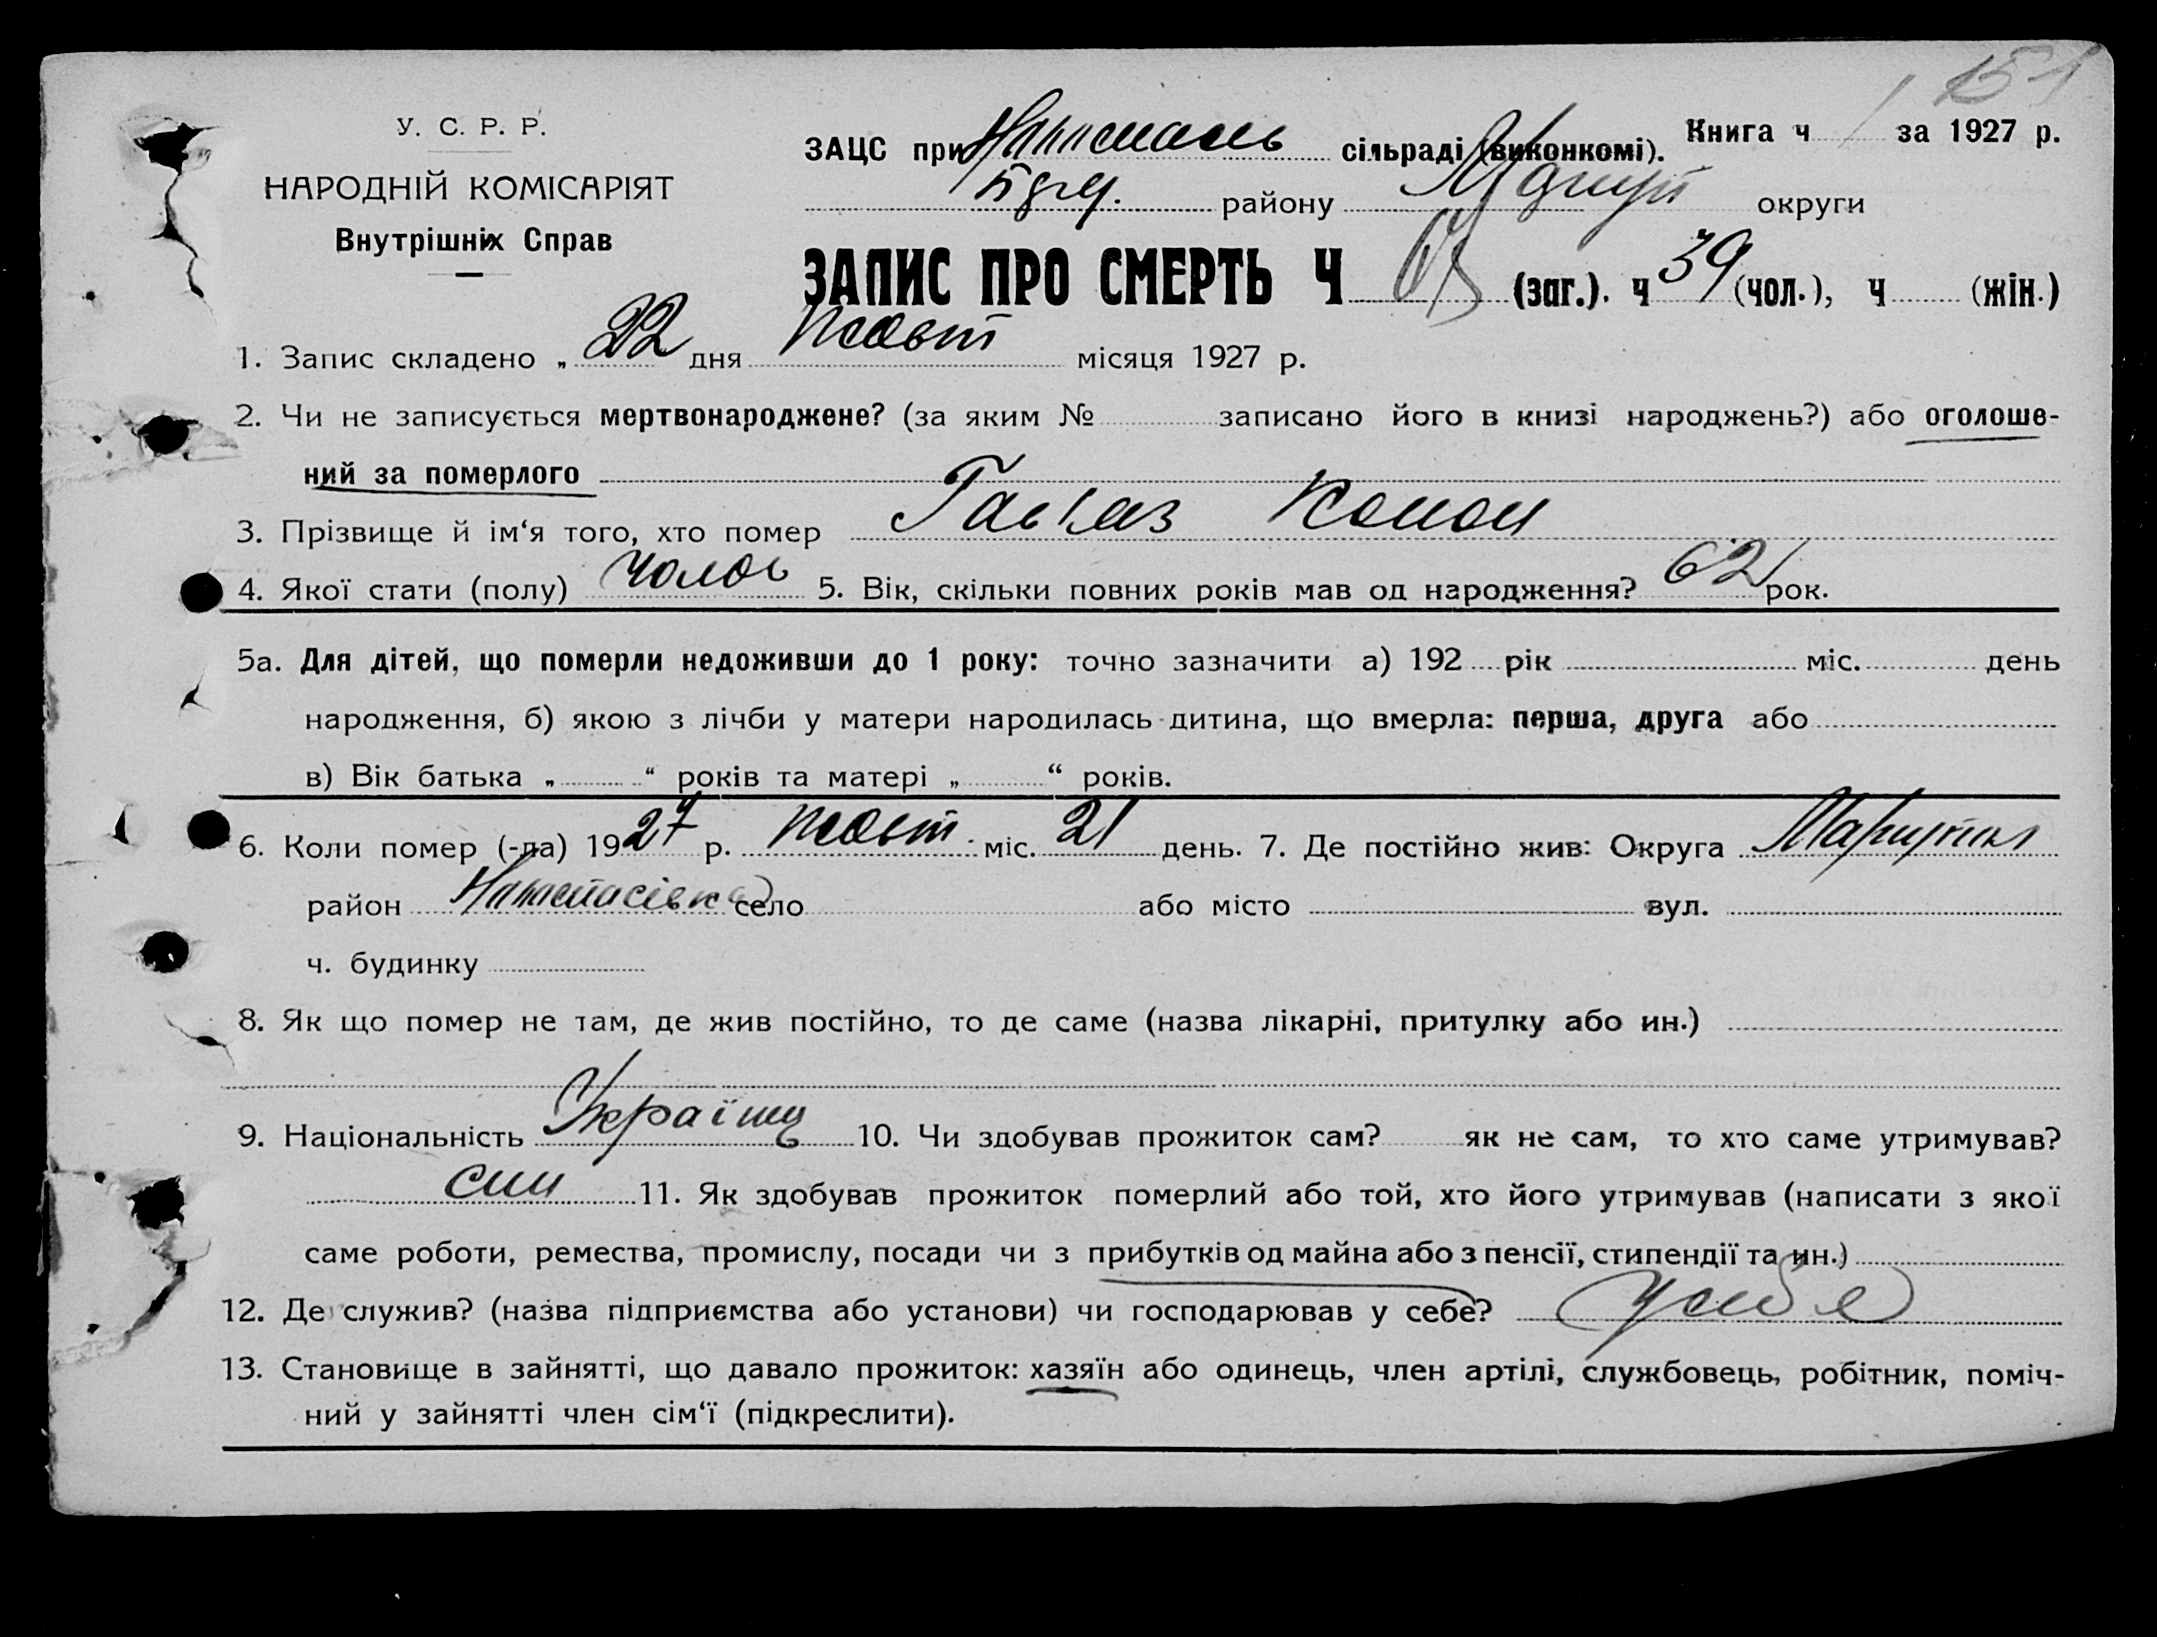 151
У. С. Р. Р.
НАРОДНІЙ КОМІСАРІЯТ
Внутрішніх Справ
ЗАЦС при сільраді (виконкомі). Книга ч 1 за 1927 р.
району Маріуп округи
ЗАПИС ПРО СМЕРТЬ Ч (заг.). ч 39 (чол.), ч (жін.)
1. Запис складено „ 22 дня Жовт місяця 1927 р.
2. Чи не записується мертвонароджене? (за яким № записано його в книзі народжень?) або оголоше-
ний за померлого
3. Прізвище й ім‘я того, хто помер Конон
4. Якої стати (полу) Чолов 5. Вік, скільки повних років мав од народження? 62 рок.
5а. Для дітей, що померли недоживши до 1 року: точно зазначити а) 192 рік міс. день
народження, б) якою з лічби у матери народилась дитина, що вмерла: перша, друга або
в) Вік батька „ “ років та матері „ “ років.
6. Коли помер (-ла) 1927 р. Жовт міс. 21 день. 7. Де постійно жив: Округа Маріупол
район село або місто вул.
ч. будинку
8. Як що помер не там, де жив постійно, то де саме (назва лікарні, притулку або ин.)
9. Національність Українц 10. Чи здобував прожиток сам? як не сам, то хто саме утримував?
син 11. Як здобував прожиток померлий або той, хто його утримував (написати з якої
саме роботи, ремества, промислу, посади чи з прибутків од майна або з пенсії, стипендії та ин.)
12. Де служив? (назва підприємства або установи) чи господарював у себе? у себе
13. Становище в зайнятті, що давало прожиток: хазяїн або одинець, член артілі, службовець, робітник, поміч-
ний у зайнятті член сім‘ї (підкреслити).